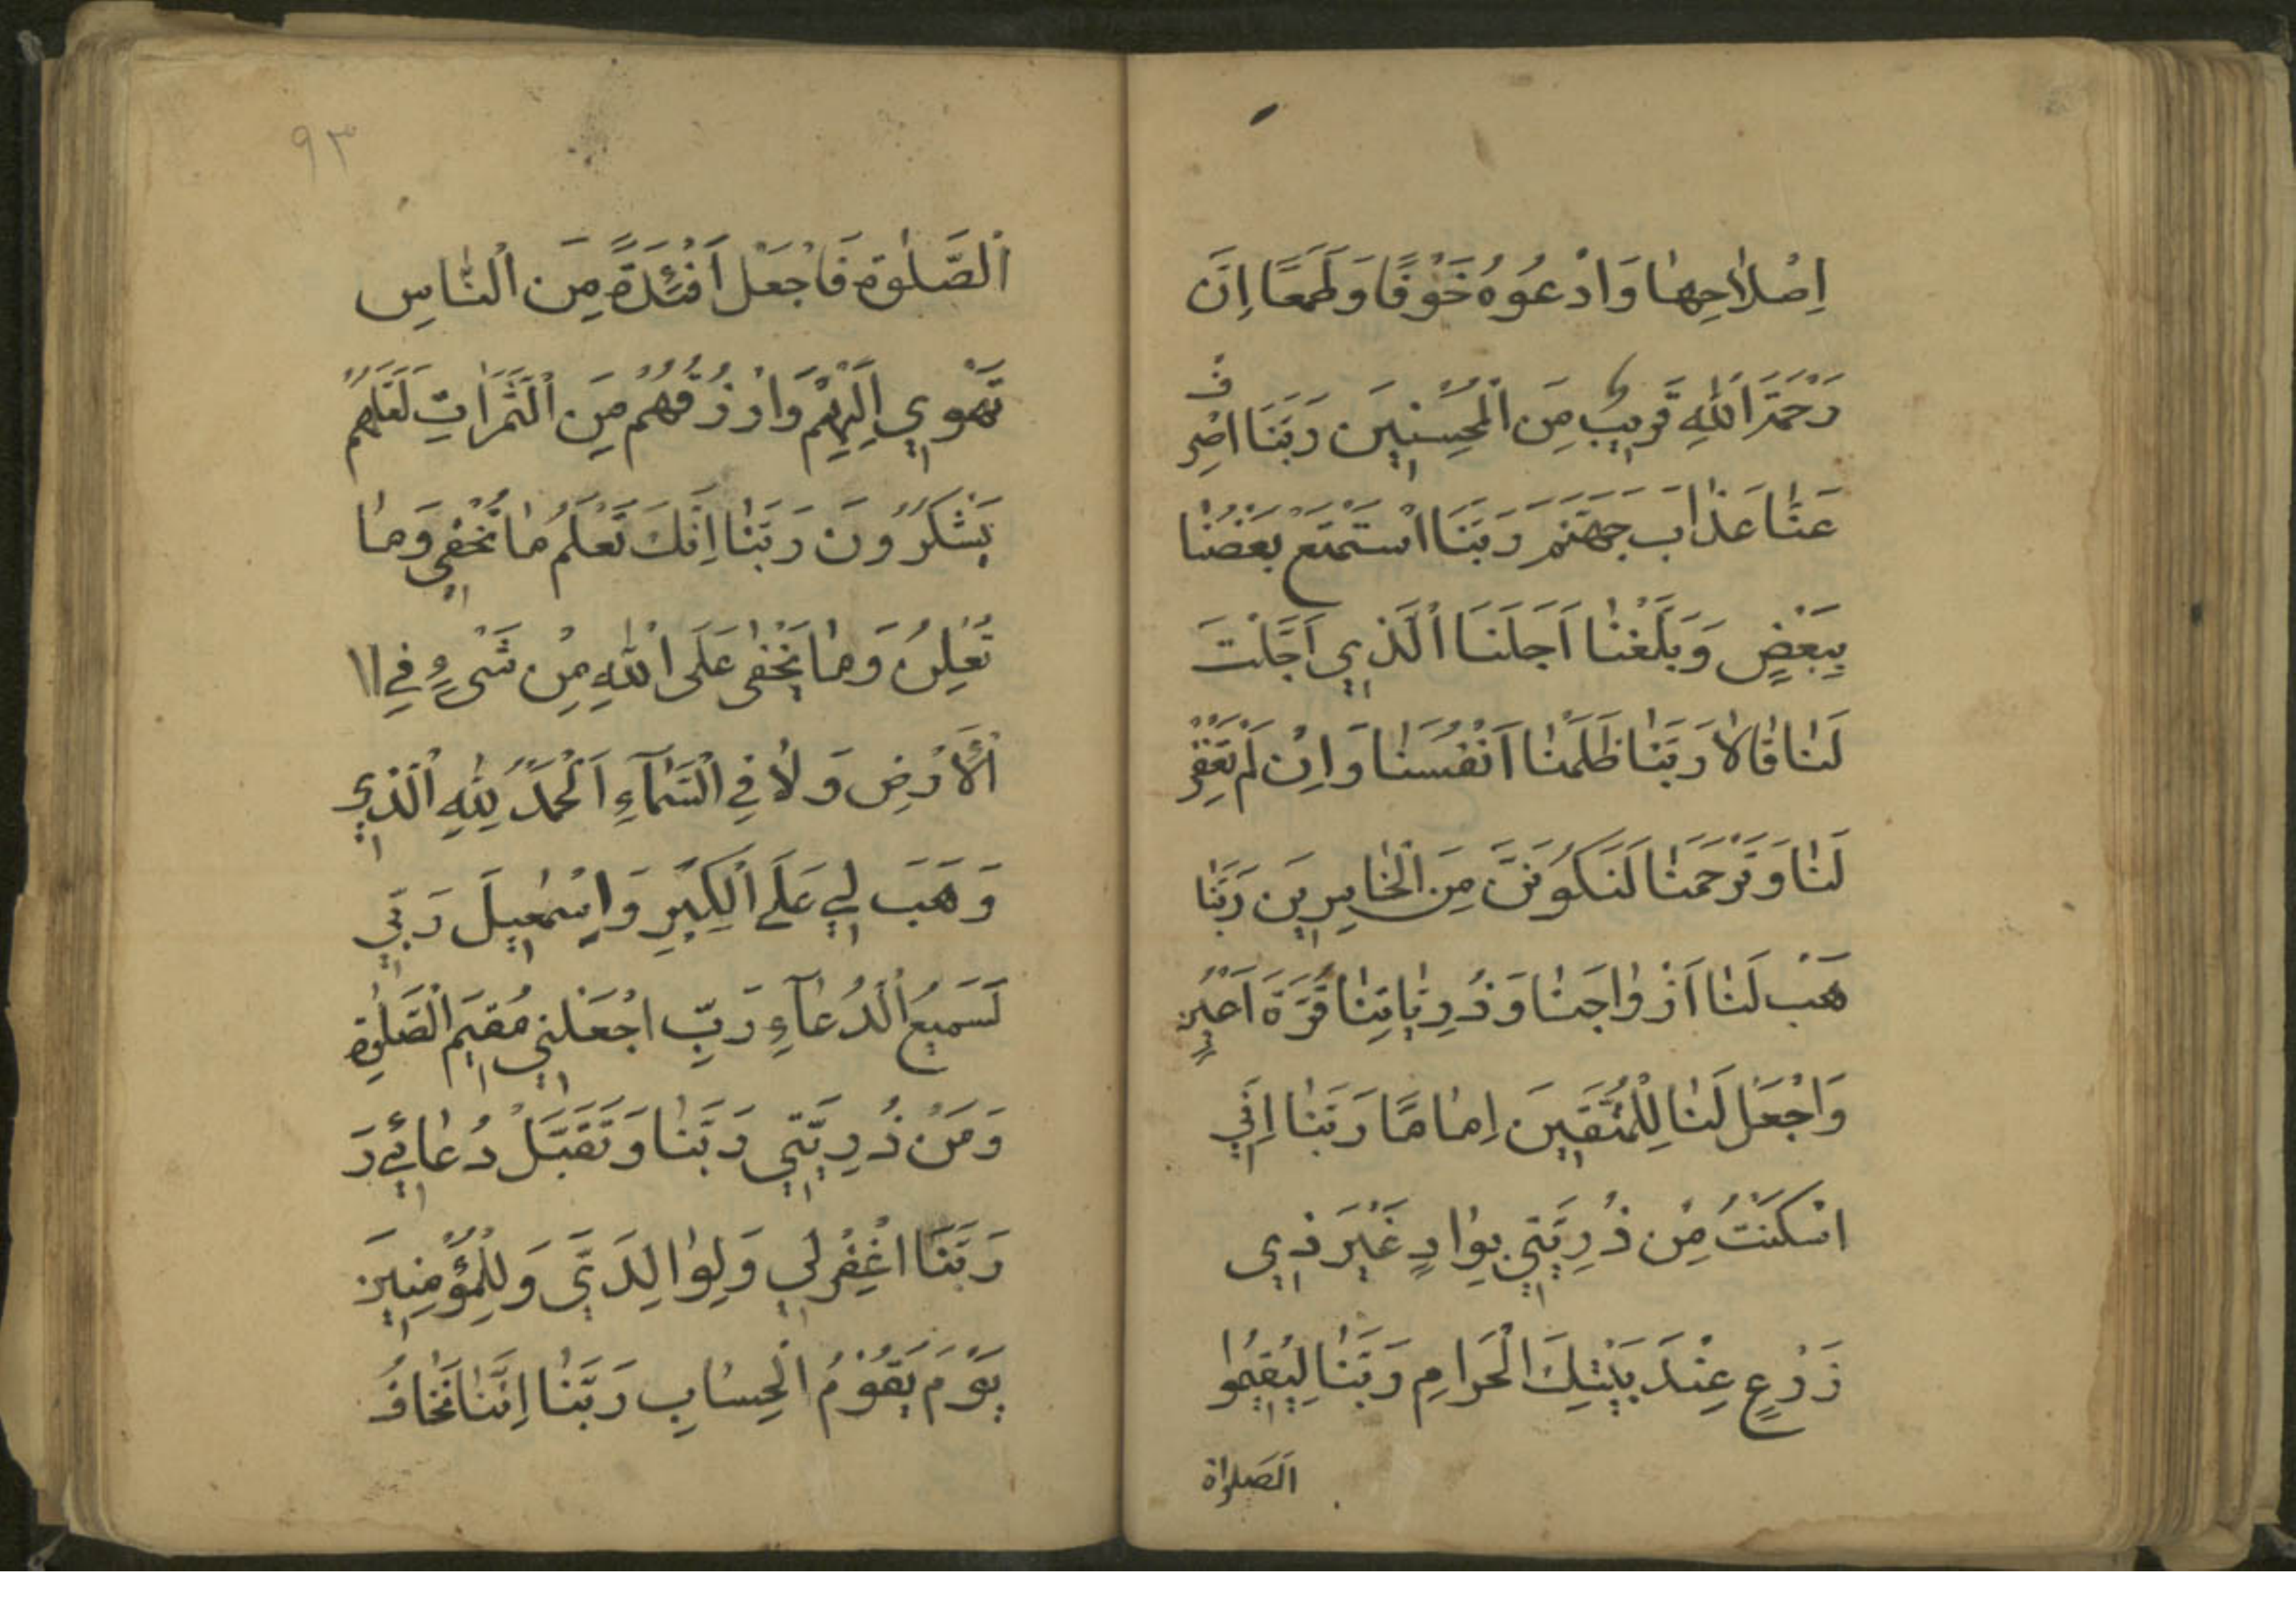 اِصْلاٰحِهٰا وَادْعُوْهُ خَوْفًا وَطَمَعًا اِنَّ
رَحْمَتَ اللّٰهِ قَرِيبٌ مِنَ الْمُحْسِنِينَ رَبَّنَا اصْرِ
ف
عَنّٰا عَذٰابَ جَهَنَّمَ رَبَّنَا اسْتَمْتَعَ بَعْضُنٰا
بِبَعْضٍ وَبَلَغْنٰا اَجَلَنَا الَّذِي اَجَّلْتَ
لَنٰا قٰالاٰ رَبَّنٰا ظَلَمْنٰا اَنْفُسَنٰا وَاِنْ لَمْ تَغْفِرْ
لَنٰا وَتَرْحَمْنٰا لَنَكُونَنَّ مِنَ الْخٰاسِرِينَ رَبَّنٰا
هَبْ لَنٰا اَزْوٰاجَنٰا وَذُرِيّٰاتِنٰا قُرَّةَ اَعْيُنٍ
وَاجْعَلْ لَنٰا لِلْمُتَّقِينَ اِمٰامًا رَبَّنٰا اِنِّي
اسْكَنْتُ مِنْ ذُرِيَّتِي بِوٰادٍ غَيْرَ ذِي
زَرْعٍ عِنْدَ بَيْتِكَ الْحَرامِ رَبَّنٰا لِيُقِيمُوا
الصَلواة
٩٣
الصَّلٰوةَ فَاجْعَلْ اَفْئِدَةً مِنَ النّٰاسِ
تَهْوِي اِلَيْهِمْ وَارْزُقْهُمْ مِنَ الثَّمَرَاتِ لَعَلَّهُمْ
يَشْكُرُونَ رَبَّنٰا اِنَّكَ تَعْلَمُ مٰا نُخْفِي وَمٰا
نُعْلِنُ وَمٰا يَخْفىٰ عَلَى اللّٰهِ مِنْ شَىْءٍ فِي اا
الْأَرْضِ وَلاٰ فِي السَّمٰآءِ اَلْحَمْدُ لِلّٰهِ الَّذِي
وَهَبَ لِي عَلَى الْكِبَرِ وَاِسْمٰعِيلَ رَبِّي
لَسَمِيعُ الدُّعٰآءِ رَبِّ اجْعَلْنِي مُقِيمَ الصَّلٰوةِ
وَمَنْ ذُرِيَّتِي رَبَّنٰا وَتَقَبَّلْ دُعٰائِي رَ
رَبَّنَا اغْفِرْلِي وَلِوٰالِدَيَّ وَلِلْمُؤْمِنِينَ
يَوْمَ يَقُوْمُ الْحِسٰابِ رَبَّنٰا اِنَّنٰا نَخٰافُ